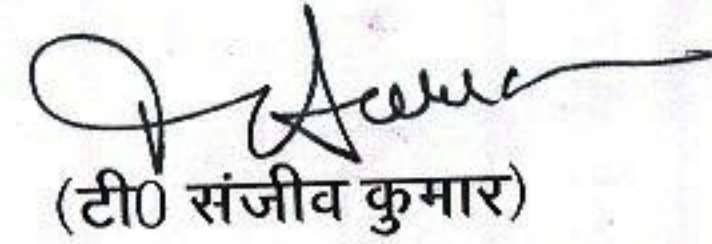 (टी0 संजीव कुमार)